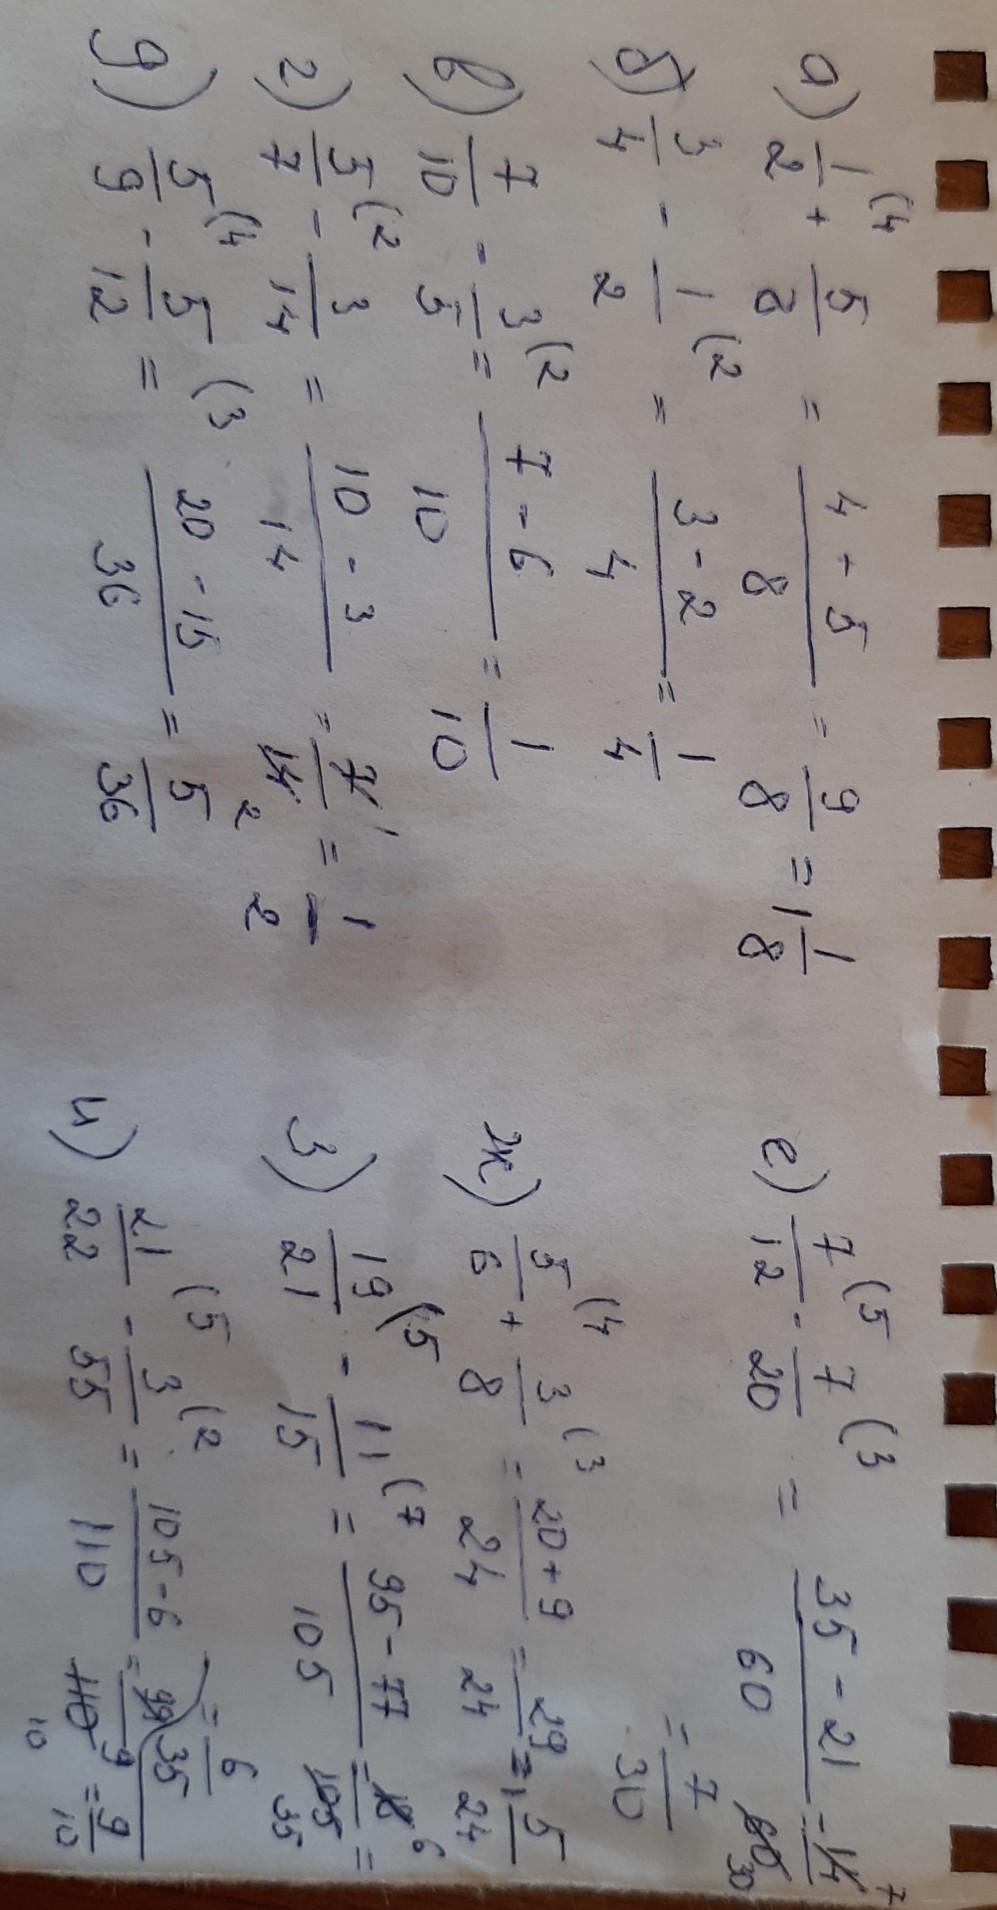 а) 1/2 (4 + 5/8 = 4 + 5/8 = 9/8 = 1 1/8
б) 3/4 - 1/2 (2 = 3 - 2/4 = 1/4
в) 7/10 - 3/5 (2 = 7 - 6/10 = 1/10
г) 5/7 (2 - 3/14 = 10 - 3/14 = 7 1/14 2 = 1/2
д) 5/9 (4 - 5/12 (3 = 20 - 15/36 = 5/36
е) 7/12 (5 - 7/20 (3 = 35 - 21/60 = 14 7/60 30
= 7/30
ж) 5/6 (4 + 3/8 (3 = 20 + 9/24 = 29/24 = 1 5/24
з) 19/21 (5 - 11/15 (7 = 95 - 77/105 = 18 6/105 35 =
= 6/35
и) 21/22 (5 - 3/55 (2 = 105 - 6/110 = 99 9/110 10 = 9/10